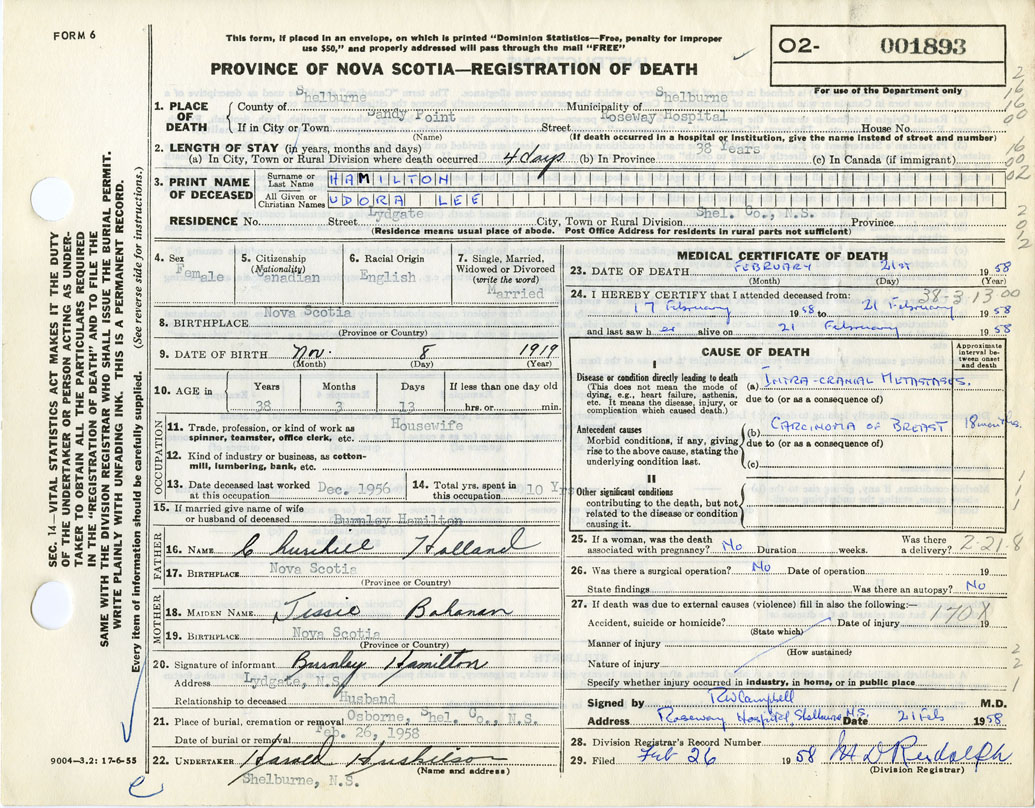 FORM 6
This form, if placed in an envelope, on which is printed "Dominion Statistics—Free, penalty for improper
use $50," and properly addressed will pass through the mail "FREE"
02- 001893
For use of the Department only
PROVINCE OF NOVA SCOTIA—REGISTRATION OF DEATH
1. PLACE OF DEATH County of Shelburne Municipality of Shelburne
If in City or Town Sandy Point (Name) Street Roseway Hospital House No.
(If death occurred in a hospital or institution, give the name instead of street and number)
2. LENGTH OF STAY (in years, months and days)
(a) In City, Town or Rural Division where death occurred 4 days (b) In Province 38 Years (c) In Canada (if immigrant)
3. PRINT NAME OF DECEASED Surname or Last Name HAMILTON
All Given or Christian Names UDORA LEE
RESIDENCE No. Street Lydgate City, Town or Rural Division Shel. Co., N.S. Province
(Residence means usual place of abode. Post Office Address for residents in rural parts not sufficient)
4. Sex Female
5. Citizenship (Nationality) Canadian
6. Racial Origin English
7. Single, Married, Widowed or Divorced (write the word) Married
8. BIRTHPLACE Nova Scotia
(Province or Country)
9. DATE OF BIRTH Nov. 8 1919
(Month) (Day) (Year)
10. AGE in Years Months Days If less than one day old
38 3 13 hrs. or min.
OCCUPATION
11. Trade, profession, or kind of work as spinner, teamster, office clerk, etc. Housewife
12. Kind of industry or business, as cotton-mill, lumbering, bank, etc.
13. Date deceased last worked at this occupation Dec. 1956
14. Total yrs. spent in this occupation 10 Yrs
15. If married give name of wife or husband of deceased Burnley Hamilton
FATHER
16. NAME Churchill Holland
17. BIRTHPLACE Nova Scotia
(Province or Country)
MOTHER
18. MAIDEN NAME Jessie Bahanan
19. BIRTHPLACE Nova Scotia
(Province or Country)
20. Signature of informant Burnley Hamilton
Address Lydgate, N.S.
Relationship to deceased Husband
21. Place of burial, cremation or removal Osborne, Shel. Co., N.S.
Date of burial or removal Feb. 26, 1958
22. UNDERTAKER Harold Huskilson
(Name and address)
Shelburne, N.S.
9004—3.2: 17-6-55
MEDICAL CERTIFICATE OF DEATH
23. DATE OF DEATH FEBRUARY 21st 1958
(Month) (Day) (Year)
38-3-13 00
24. I HEREBY CERTIFY that I attended deceased from:
17 February 1958 to 21 February 1958
and last saw h er alive on 21 February 1958
CAUSE OF DEATH
Approximate interval between onset and death
I
Disease or condition directly leading to death (a) INTRA-CRANIAL METASTASES.
(This does not mean the mode of dying, e.g., heart failure, asthenia, etc. It means the disease, injury, or complication which caused death.)
due to (or as a consequence of)
Antecedent causes
(b) CARCINOMA OF BREAST 18 months.
Morbid conditions, if any, giving rise to the above cause, stating the underlying condition last.
due to (or as a consequence of)
(c)
II
Other significant conditions
contributing to the death, but not related to the disease or condition causing it.
25. If a woman, was the death associated with pregnancy? No Duration weeks. Was there a delivery? 2-21.8
26. Was there a surgical operation? No Date of operation 19
State findings Was there an autopsy? No
27. If death was due to external causes (violence) fill in also the following:—
170X
Accident, suicide or homicide? Date of injury 19
(State which)
Manner of injury
(How sustained)
Nature of injury
Specify whether injury occurred in industry, in home, or in public place
Signed by RW Campbell M.D.
Address Roseway Hospital Shelburne N.S. Date 21 Feb 1958
28. Division Registrar's Record Number
29. Filed Feb 26 1958
(Division Registrar)
SEC. 14—VITAL STATISTICS ACT MAKES IT THE DUTY
OF THE UNDERTAKER OR PERSON ACTING AS UNDER-
TAKER TO OBTAIN ALL THE PARTICULARS REQUIRED
IN THE "REGISTRATION OF DEATH" AND TO FILE THE
SAME WITH THE DIVISION REGISTRAR WHO SHALL ISSUE THE BURIAL PERMIT.
WRITE PLAINLY WITH UNFADING INK. THIS IS A PERMANENT RECORD.
Every item of information should be carefully supplied. (See reverse side for instructions.)